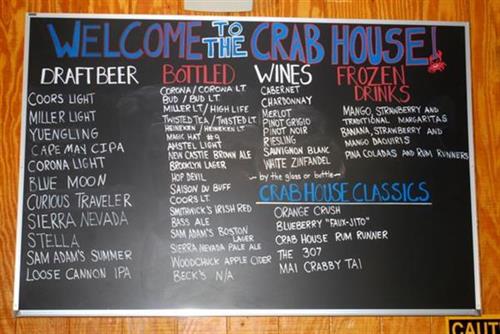 WELCOME TO THE CRAB HOUSE!
DRAFT BEER
COORS LIGHT
MILLER LIGHT
YUENGLING
CAPE MAY CIPA
CORONA LIGHT
BLUE MOON
CURIOUS TRAVELER
SIERRA NEVADA
STELLA
SAM ADAM'S SUMMER
LOOSE CANNON IPA
BOTTLED
CORONA/CORONA LT.
BUD / BUD LT.
MILLER LT/HIGH LIFE
TWISTED TEA/TWISTED LT
HEINEKEN/HEINEKEN LT.
MAGIC HAT #9
AMSTEL LIGHT
NEW CASTLE BROWN ALE
BROOKLYN LAGER
HOP DEVIL
SAISON DU BUFF
COORS LT.
SMITHWICK'S IRISH RED
BASS ALE
SAM ADAM'S BOSTON
LAGER
SIERRA NEVADA PALE ALE
WOODCHUCK APPLE CIDER
BECK'S N/A
WINES
CABERNET
CHARDONNAY
MERLOT
PINOT GRIGIO
PINOT NOIR
RIESLING
SAUVIGNON BLANC
WHITE ZINFANDEL
- by the glass or bottle -
FROZEN
DRINKS
MANGO, STRAWBERRY AND
TRADITIONAL MARGARITAS
BANANA, STRAWBERRY AND
MANGO DAQUIRIS
PINA COLADAS AND RUM RUNNERS
CRAB HOUSE CLASSICS
ORANGE CRUSH
BLUEBERRY "FAUX-JITO"
CRAB HOUSE RUM RUNNER
THE 307
MAI CRABBY TAI
CAUT